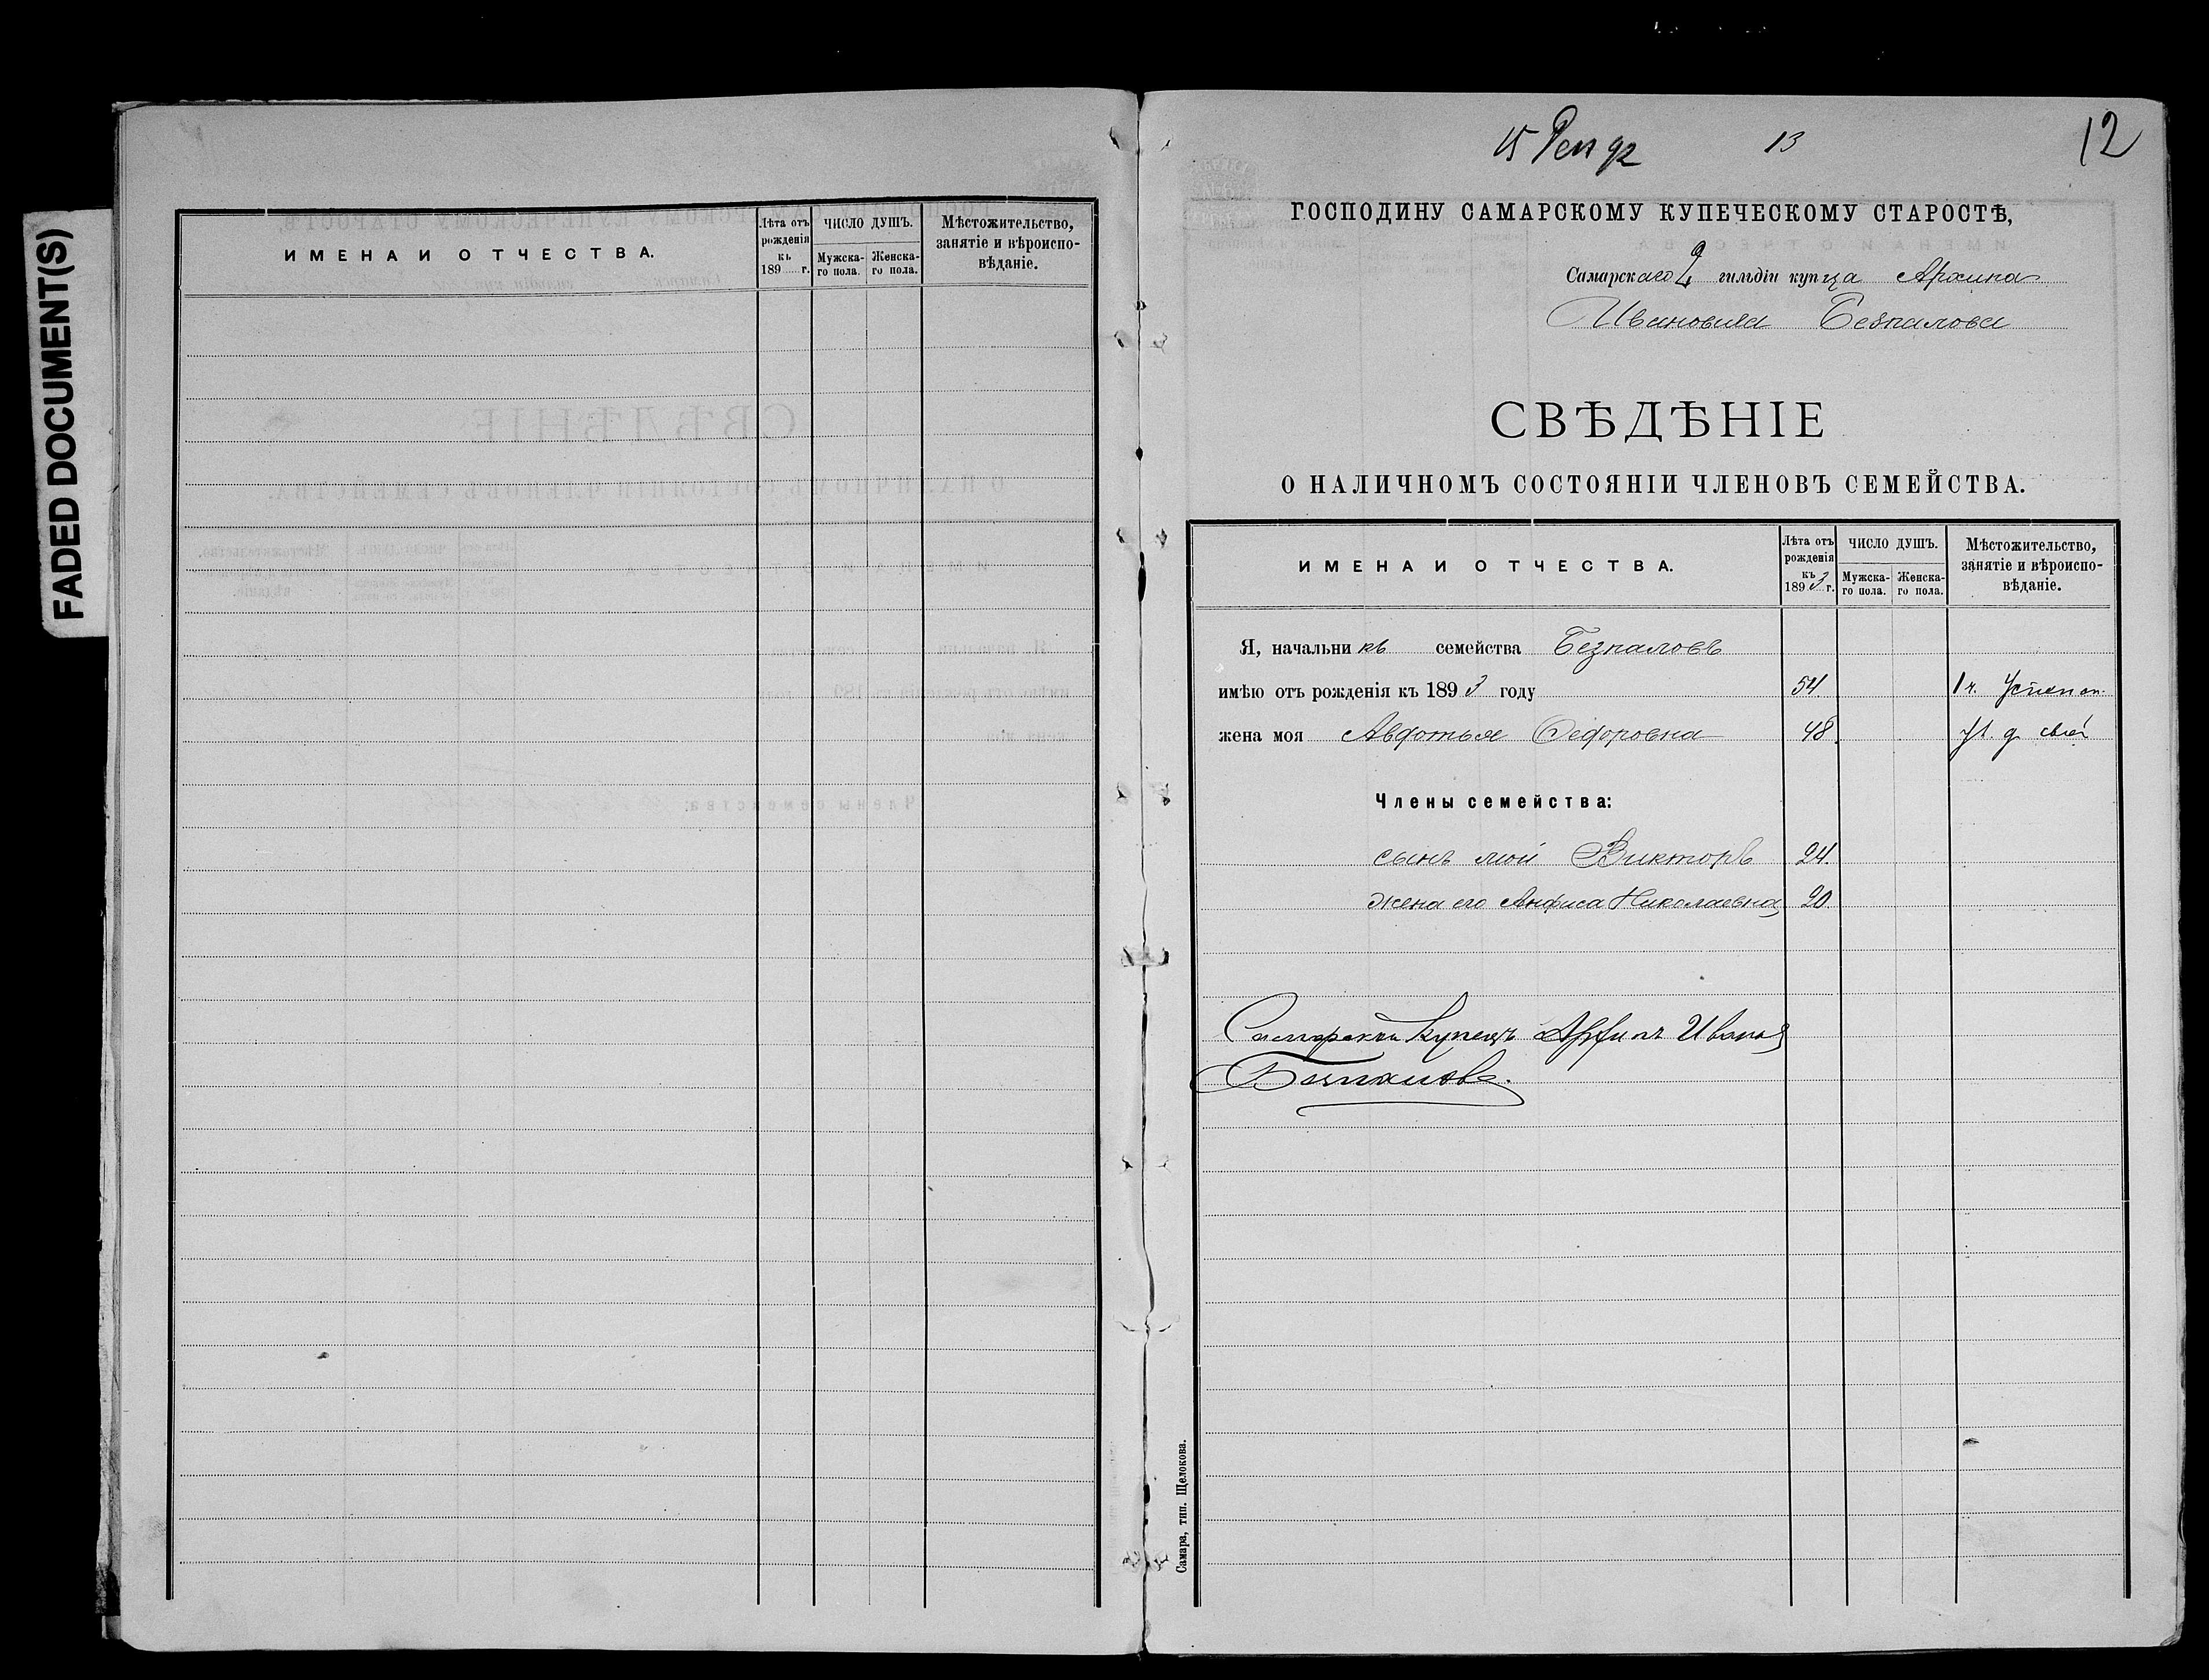 FADED DOCUMENT(S)
ИМЕНА И ОТЧЕСТВА.
Лѣта отъ рожденія къ 189 г.
ЧИСЛО ДУШЪ.
Мужска-го пола.
Женска-го пола.
Мѣстожительство, занятіе и вѣроиспо-вѣданіе.
15 92
13
12
ГОСПОДИНУ САМАРСКОМУ КУПЕЧЕСКОМУ СТАРОСТѢ,
Самарскаго 2 гильдіи купца Архипа
Ивановича Безпалова
СВѢДѢНІЕ
О НАЛИЧНОМЪ СОСТОЯНІИ ЧЛЕНОВЪ СЕМЕЙСТВА.
ИМЕНА И ОТЧЕСТВА.
Лѣта отъ рожденія къ 1893 г.
ЧИСЛО ДУШЪ.
Мужска-го пола.
Женска-го пола.
Мѣстожительство, занятіе и вѣроиспо-вѣданіе.
Я, начальникъ семейства Безпаловъ
имѣю отъ рожденія къ 1893 году 54 1 ч.
жена моя Авдотья Федоровна 48 ул. д
Члены семейства:
сынъ мой Викторъ 24.
жена его Анфиса Николаевна 20
Самарскій Купецъ Архипъ Иванов
Безпаловъ.
Самара, тип. Щелокова.